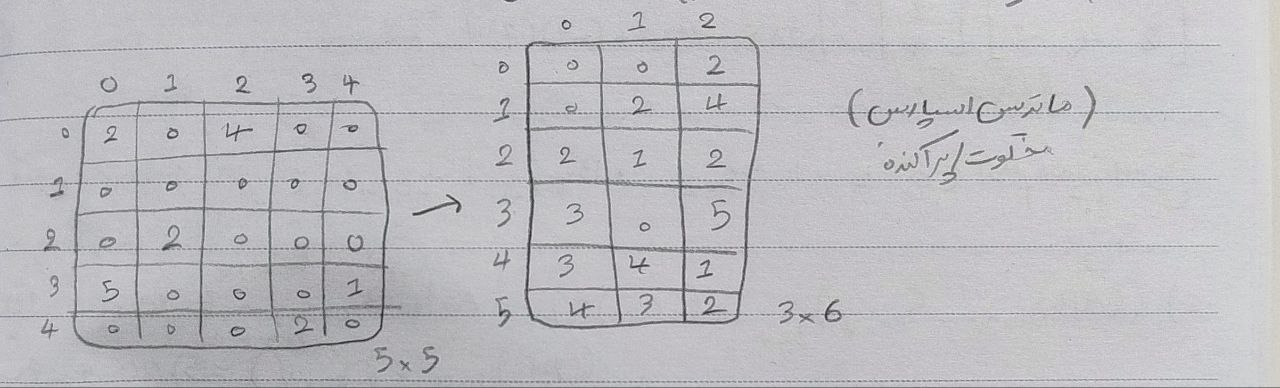 0 1 2 3 4
0 2 0 4 0 0
1 0 0 0 0 0
2 0 2 0 0 0
3 5 0 0 0 1
4 0 0 0 2 0
5 × 5
→
0 1 2
0 0 0 2
1 0 2 4
2 2 1 2
3 3 0 5
4 3 4 1
5 4 3 2
3 × 6
(ماتریس اسپارس)
/پراکنده